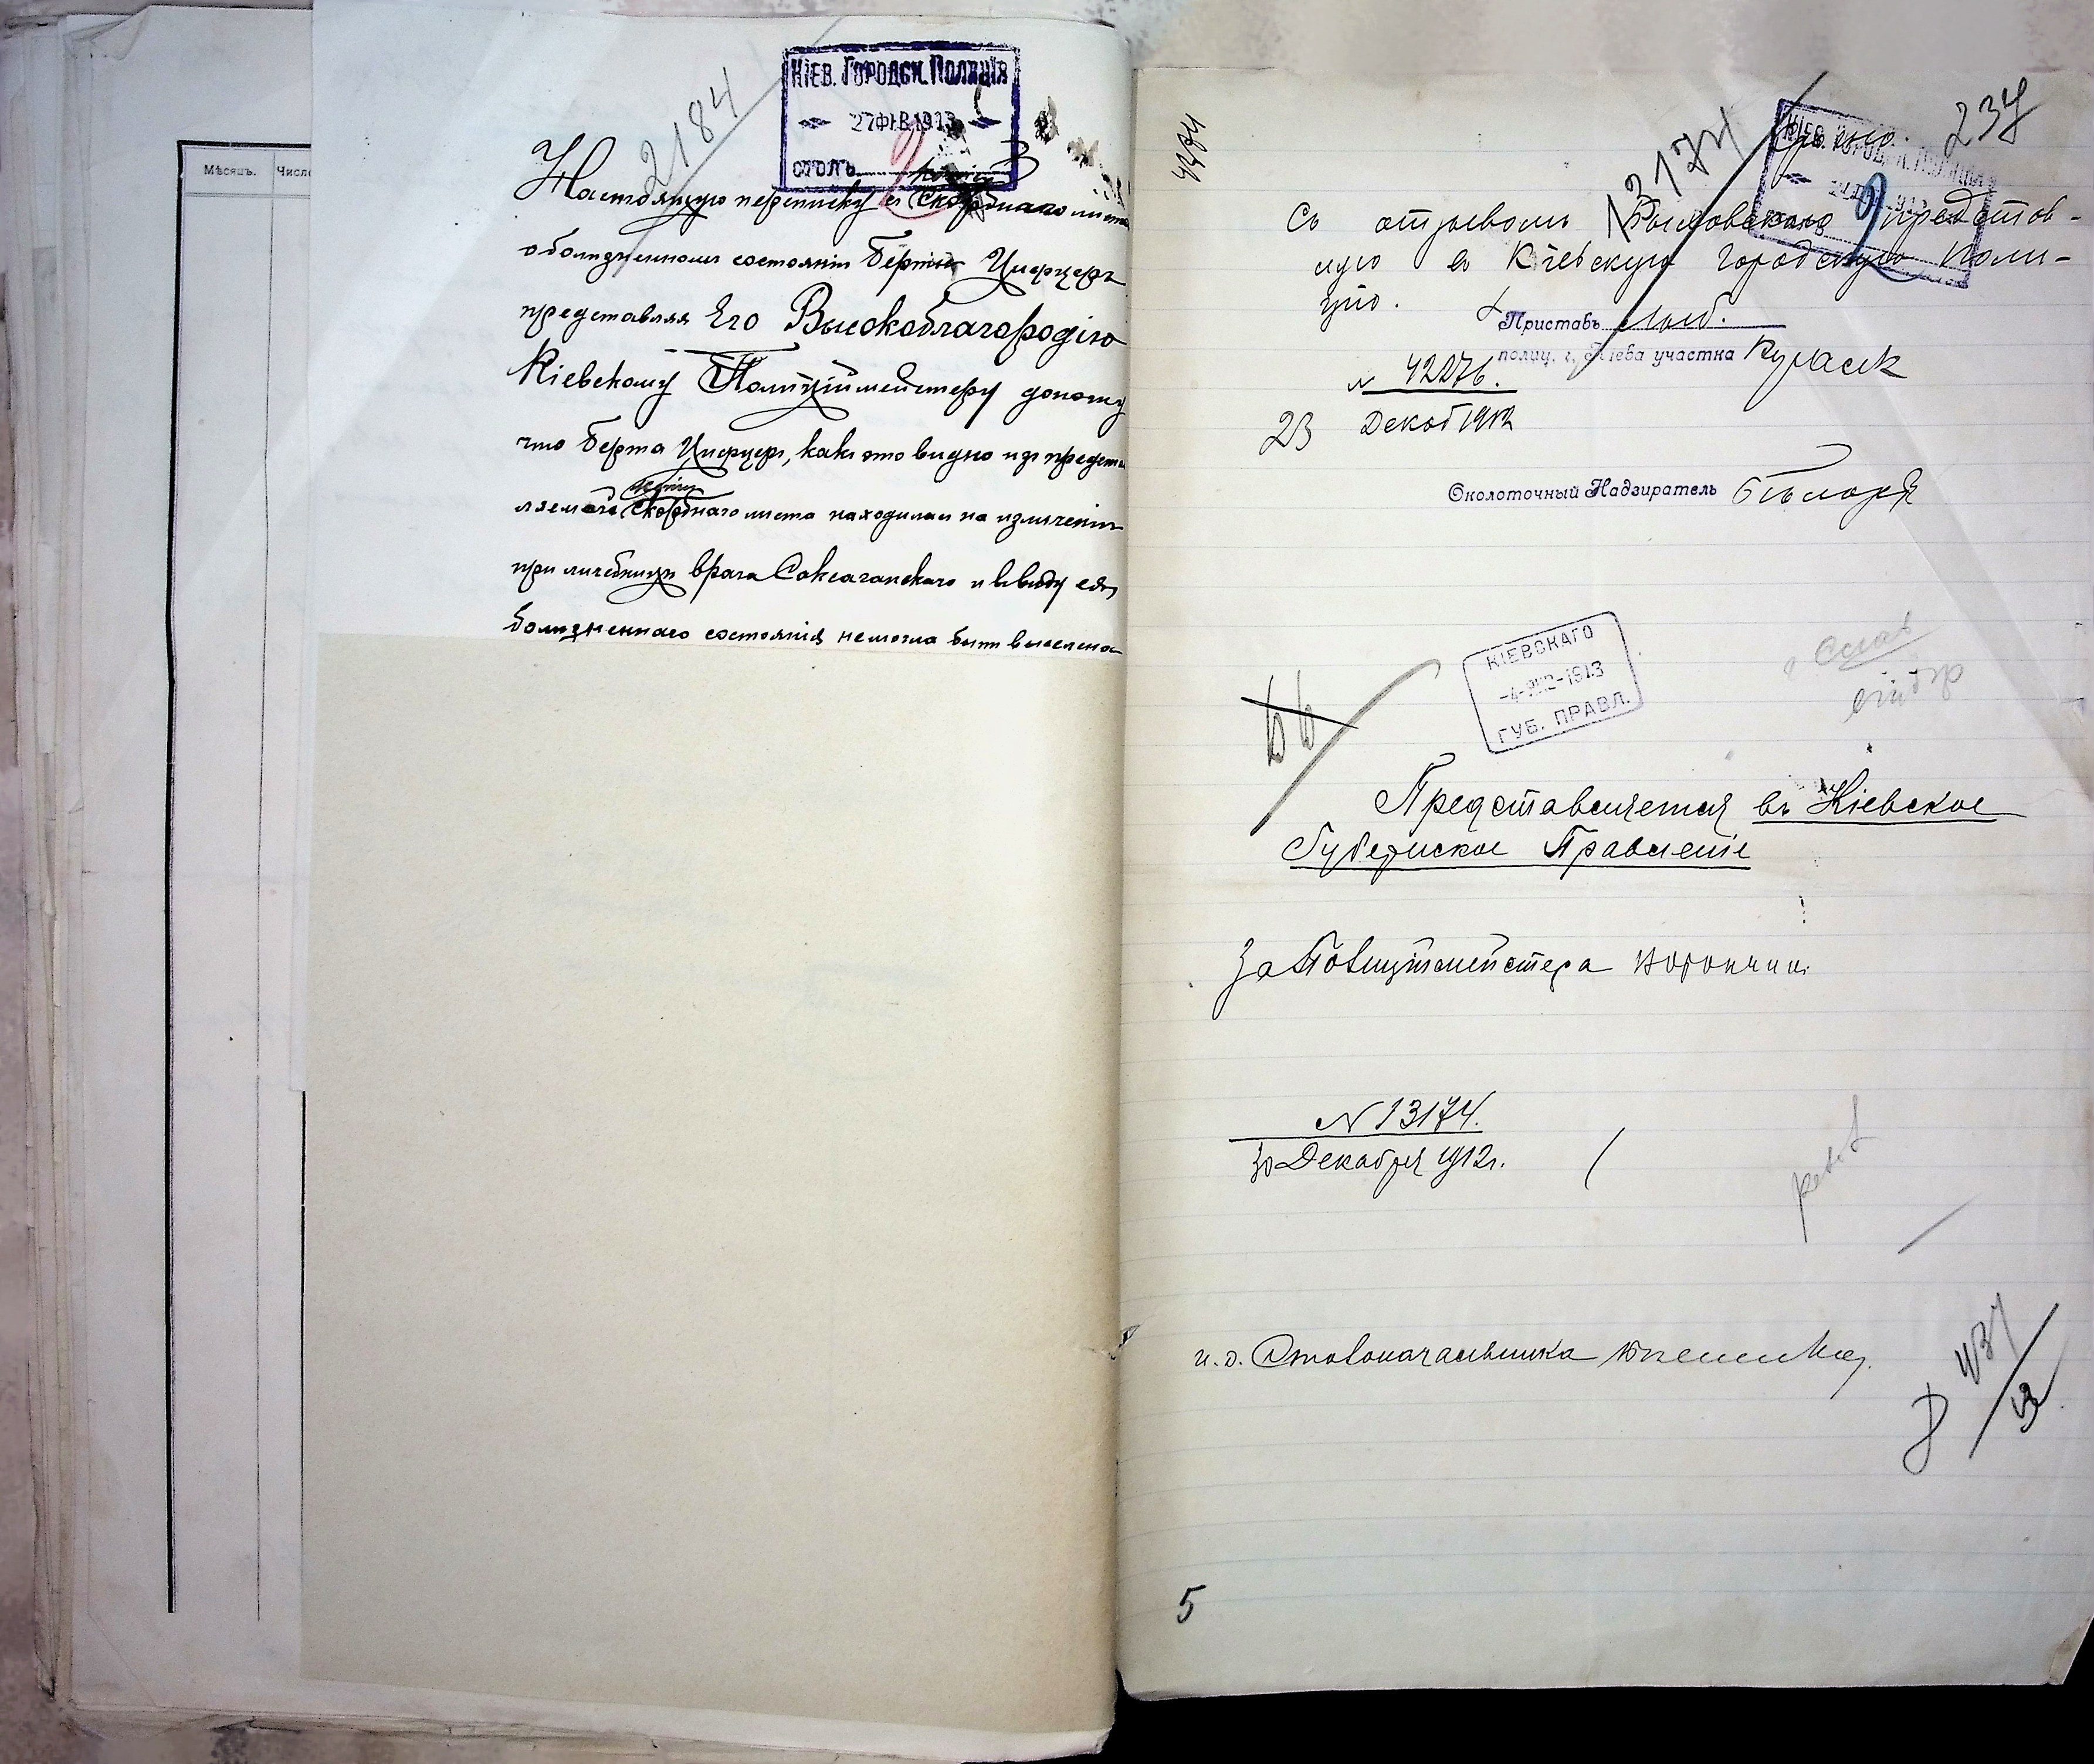 Мѣсяцъ. Число
2184
КІЕВ. ГОРОДСК. ПОЛИЦІЯ
27 ФЕВ 1913
СТОЛЪ
Настоящую переписку и копію скорбнаго листа
о болѣзненномъ состояніи Берты Цирцеръ
представляя Его Высокоблагородію
Кіевскому Полиціймейстеру доношу
что Берта Цирцеръ, какъ это видно изъ предста
вляемой копіи скорбнаго листа находилась на излеченіи
при лѣчебницѣ врача Саксаганскаго и ввиду ея
болѣзненнаго состоянія не могла быть выселена
237
13174
КІЕВ. ГОРОДСК. ПОЛИЦІЯ
Съ отзывомъ представ-
ляю въ Кіевскую Городскую Поли-
цію.
Приставъ Лыб.
полиц. г. Кіева участка
№ 42276.
23 Декаб 1912
Околоточный Надзиратель
КІЕВСКАГО
-4-ЯНВ-1913
ГУБ. ПРАВЛ.
Представляется въ Кіевское
Губернское Правленіе
За Полиціймейстера
№ 13174.
30 Декабря 1912 г.
и. д. Столоначальника
437
13
5